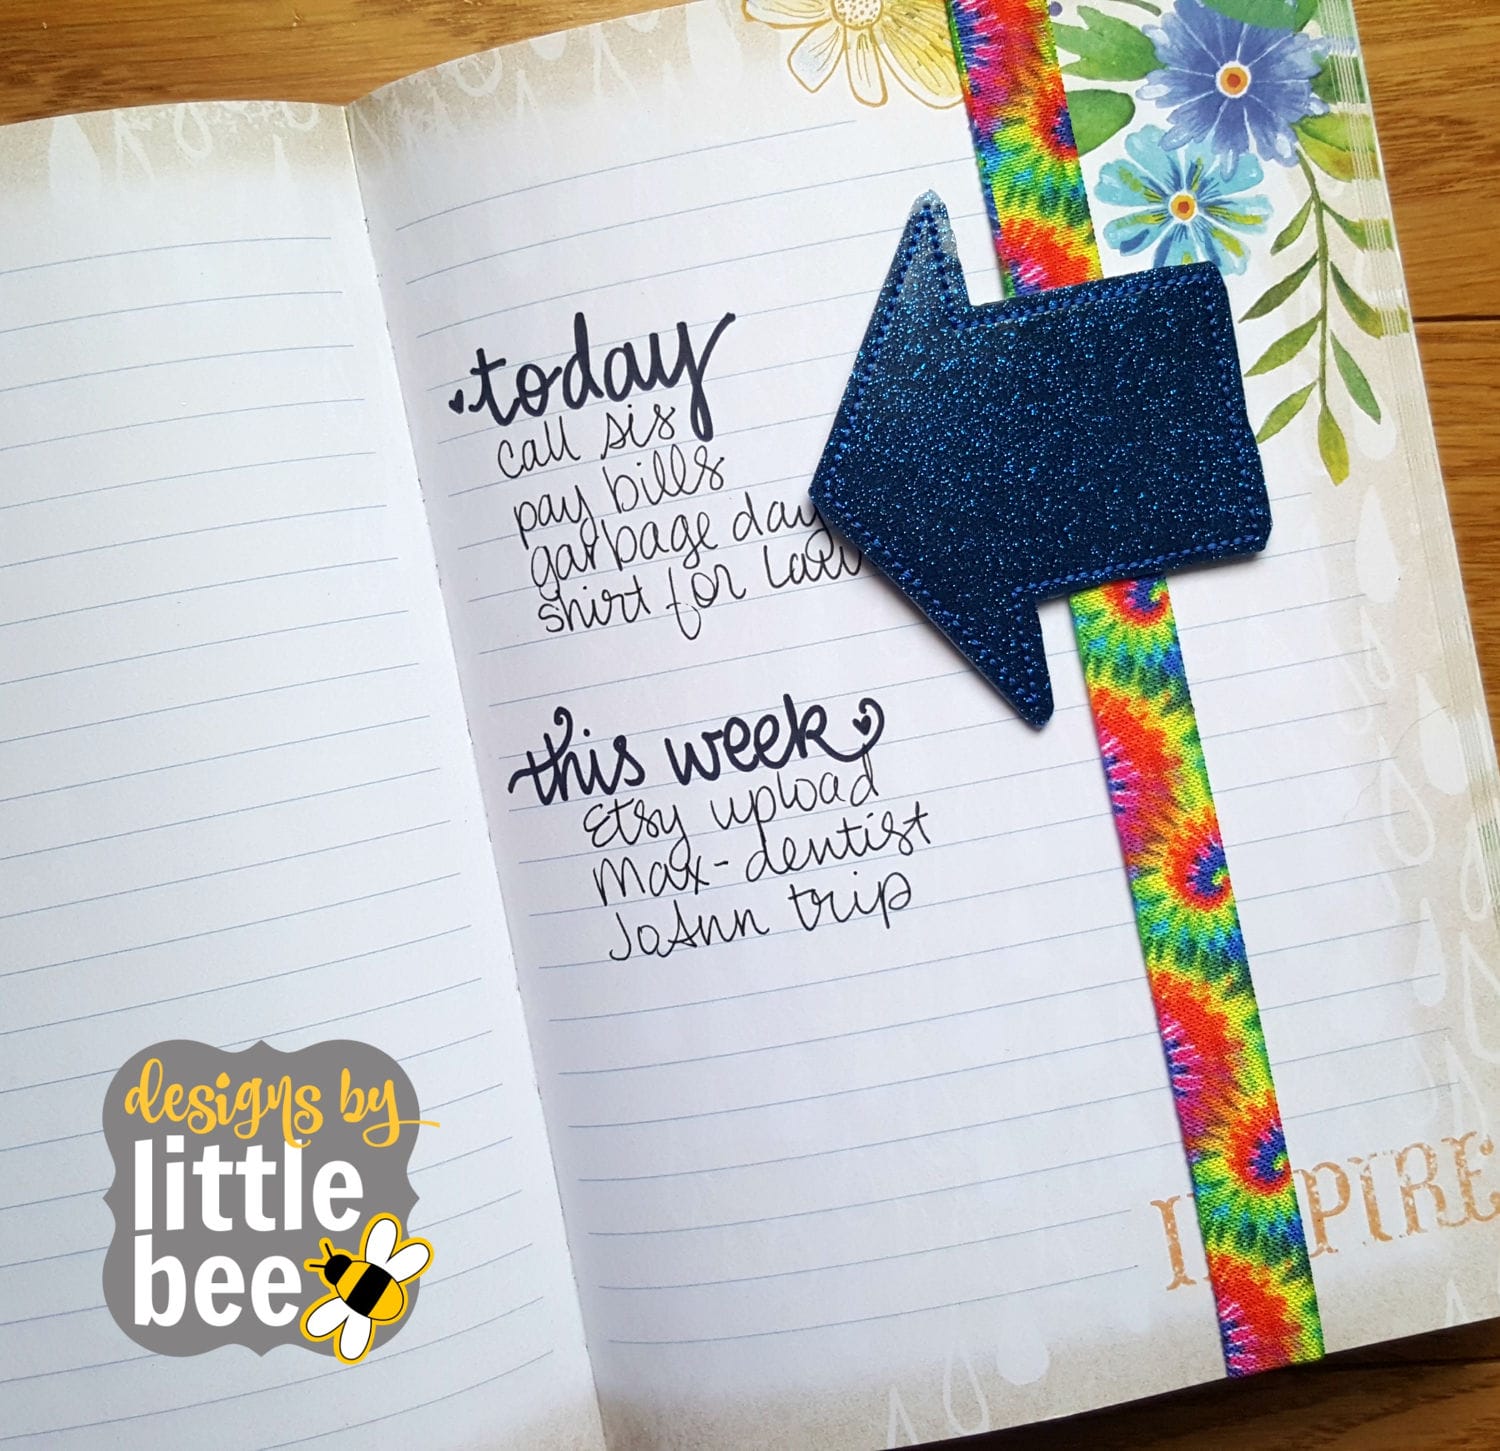 today
call sis
pay bills
garbage day
shirt for
this week
Etsy upload
Max-dentist
JoAnn trip
designs by
little
bee